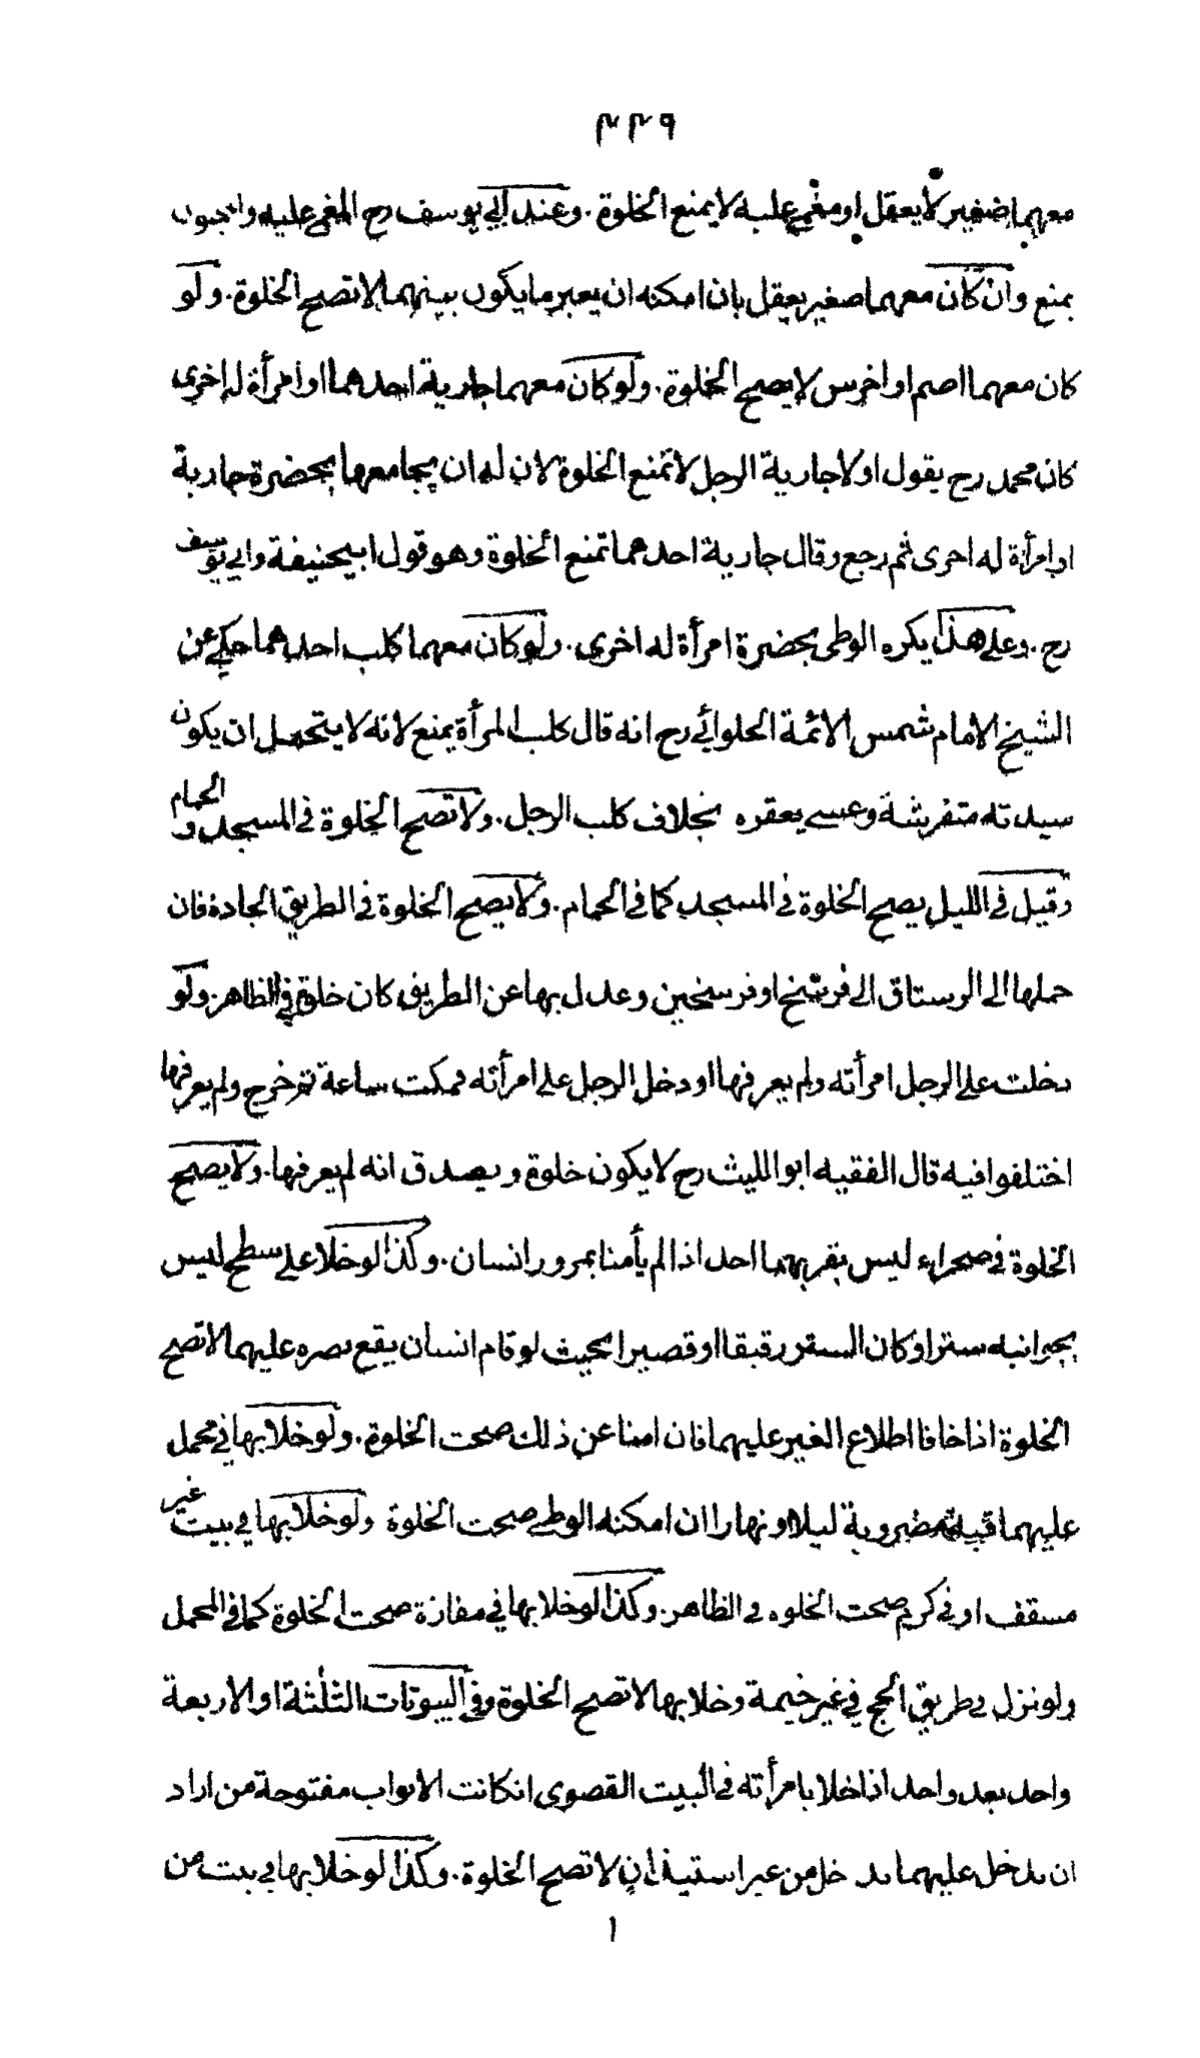 ٤٤٩
معهما صغير لا يعقل او مغمى عليه لا يمنع الخلوة . وعند ابي يوسف رح المغمى عليه والمجنون
يمنع وان كان معهما صغير يعقل بان امكنه ان يعبر ما يكون بينهما لا تصح الخلوة . ولو
كان معهما اصم او اخرس لا يصح الخلوة . ولو كان معهما جارية احدهما او امرأة له اخرى
كان محمد رح يقول اولا جارية الرجل لا تمنع الخلوة لان له ان يجامعها بحضرة جارية
او امرأة له اخرى ثم رجع وقال جارية احدهما تمنع الخلوة وهو قول ابيحنيفة وابي يوسف
رح . وعلى هذا يكره الوطى بحضرة امرأة له اخرى . ولو كان معهما كلب احدهما حكي عن
الشيخ الامام شمس الائمة الحلوائي رح انه قال كلب المرأة يمنع لانه لا يتحمل ان يكون
سيدته متفرشة وعسى يعقره بخلاف كلب الرجل . ولا تصح الخلوة في المسجد و الحمام
وقيل في الليل يصح الخلوة في المسجد كما في الحمام . ولا يصح الخلوة في الطريق الجادة فان
حملها الى الرستاق الى فرسخ او فرسخين وعدل بها عن الطريق كان خلوة في الظاهر . ولو
دخلت على الرجل امرأته ولم يعرفها او دخل الرجل على امرأته فمكث ساعة ثم خرج ولم يعرفها
اختلفوا فيه قال الفقيه ابو الليث رح لا يكون خلوة ويصدق انه لم يعرفها . ولا يصح
الخلوة في صحراء ليس بقربهما احد اذا لم يأمنا بمرور انسان . وكذا لو خلا على سطح ليس
بجوانبه ستر او كان الستر رقيقا او قصيرا بحيث لو قام انسان يقع بصره عليهما لا تصح
الخلوة اذا خافا اطلاع الغير عليهما فان امنا عن ذلك صحت الخلوة . ولو خلا بها في محمل
عليهما قبة مضروبة ليلا او نهارا ان امكنه الوطي صحت الخلوة ولو خلا بها في بيت غير
مسقف او في كرم صحت الخلوه في الظاهر . وكذا لو خلا بها في مفازة صحت الخلوة كما في المحمل
ولو نزل في طريق الحج في غير خيمة وخلا بها لا تصح الخلوة وفي البيوتات الثلثة او الاربعة
واحد بعد واحد اذا خلا بامرأته في البيت القصوى انكانت الابواب مفتوحة من اراد
ان يدخل عليهما يدخل من غير استيذان لا تصح الخلوة . وكذا لو خلا بها في بيت من
١